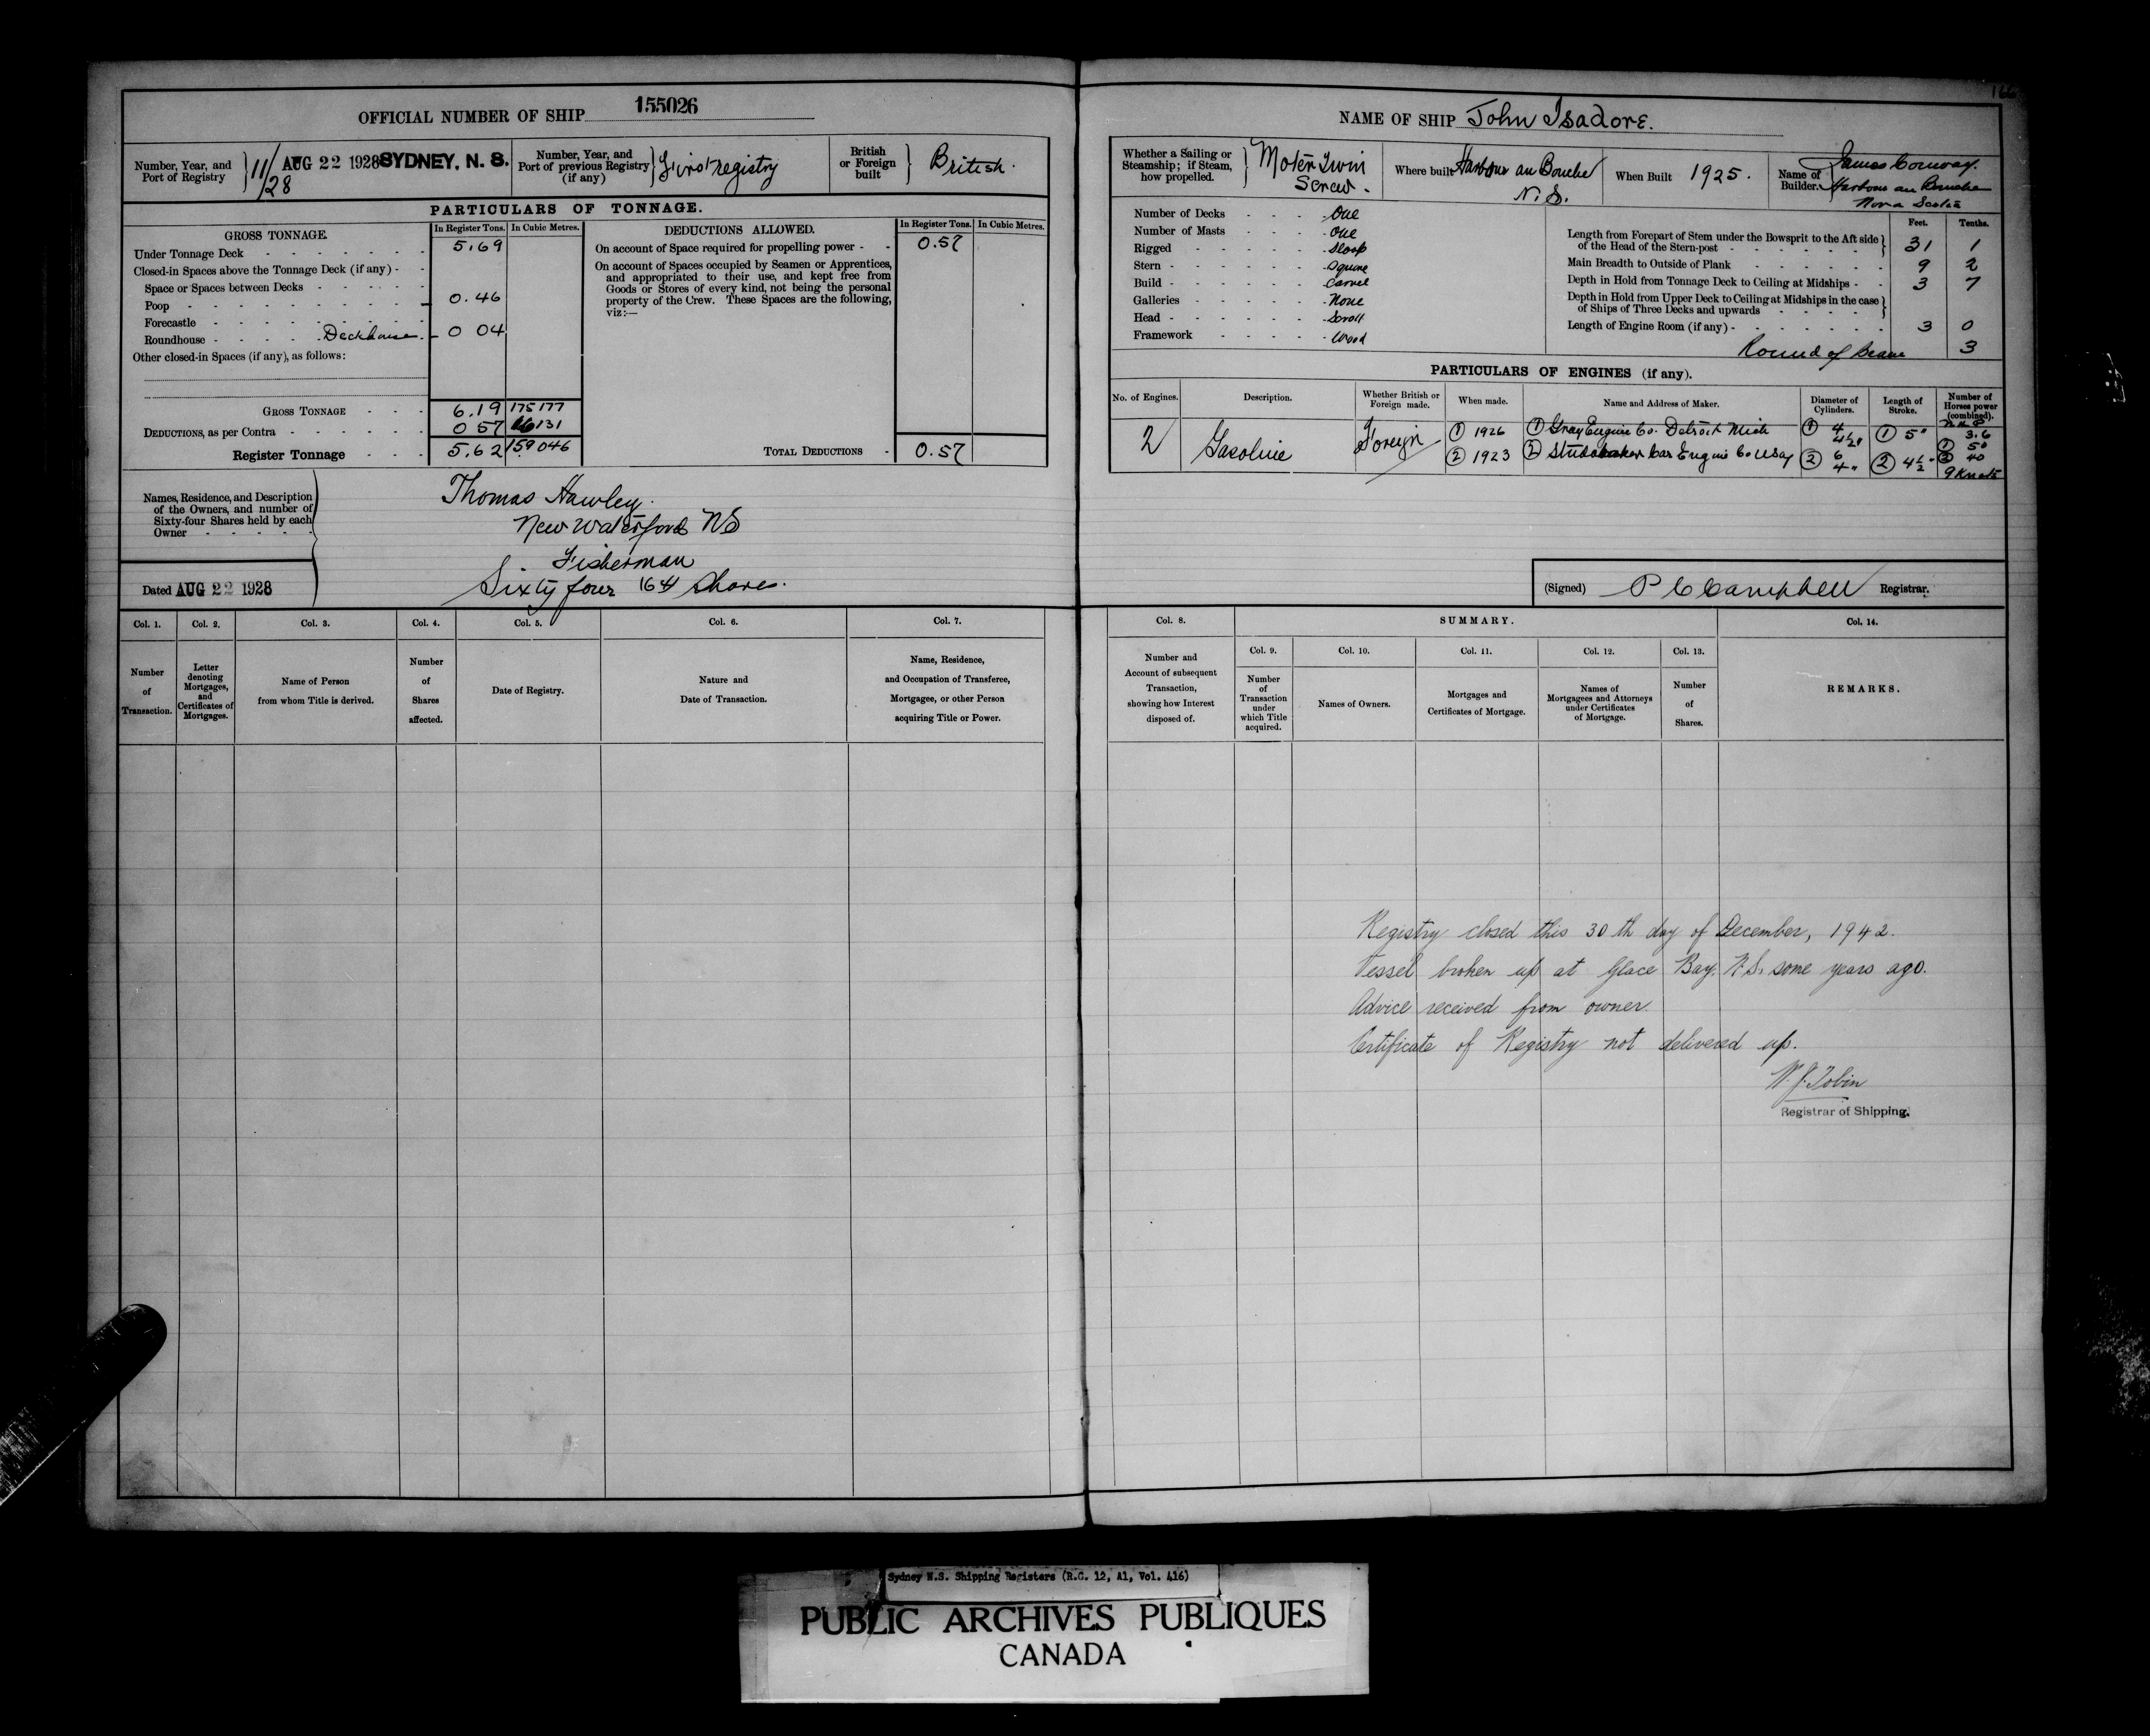 166
OFFICIAL NUMBER OF SHIP 155026
Number, Year, and Port of Registry 11/28 AUG 22 1928 SYDNEY, N. S.
Number, Year, and Port of previous Registry (if any) First registry
British or Foreign built British.
PARTICULARS OF TONNAGE.
GROSS TONNAGE.
In Register Tons. In Cubic Metres.
Under Tonnage Deck 5.69
Closed-in Spaces above the Tonnage Deck (if any)
Space or Spaces between Decks
Poop 0.46
Forecastle
Roundhouse Deckhouse 0 04
Other closed-in Spaces (if any), as follows:
GROSS TONNAGE 6.19 175 177
DEDUCTIONS, as per Contra 0 57 16 131
Register Tonnage 5.62 159 046
DEDUCTIONS ALLOWED.
In Register Tons. In Cubic Metres.
On account of Space required for propelling power 0.57
On account of Spaces occupied by Seamen or Apprentices,
and appropriated to their use, and kept free from
Goods or Stores of every kind, not being the personal
property of the Crew. These Spaces are the following,
viz:—
TOTAL DEDUCTIONS 0.57
Names, Residence, and Description
of the Owners, and number of
Sixty-four Shares held by each
Owner
Thomas Hawley.
New Waterford NS
Fisherman
Sixty four /64 Shares.
Dated AUG 22 1928
Col. 1. Number of Transaction.
Col. 2. Letter denoting Mortgages, and Certificates of Mortgages.
Col. 3. Name of Person from whom Title is derived.
Col. 4. Number of Shares affected.
Col. 5. Date of Registry.
Col. 6. Nature and Date of Transaction.
Col. 7. Name, Residence, and Occupation of Transferee, Mortgagee, or other Person acquiring Title or Power.
NAME OF SHIP John Isadore.
Whether a Sailing or Steamship; if Steam, how propelled. Motor Twin Screw.
Where built Harbour au Bouche N.S.
When Built 1925.
Name of Builder. James Conway. Harbour au Bouche Nova Scotia
Number of Decks One
Number of Masts One
Rigged Sloop
Stern Square
Build Carvel
Galleries None
Head Scroll
Framework Wood
Feet. Tenths.
Length from Forepart of Stem under the Bowsprit to the Aft side of the Head of the Stern-post 31 1
Main Breadth to Outside of Plank 9 2
Depth in Hold from Tonnage Deck to Ceiling at Midships 3 7
Depth in Hold from Upper Deck to Ceiling at Midships in the case of Ships of Three Decks and upwards
Length of Engine Room (if any) 3 0
Round of Beam 3
PARTICULARS OF ENGINES (if any).
No. of Engines. Description. Whether British or Foreign made. When made. Name and Address of Maker. Diameter of Cylinders. Length of Stroke. Number of Horses power (combined).
2 Gasoline Foreign
① 1926 ① Gray Engine Co. Detroit Mich ① 4 4½" ① 5" N.H.P 3.6
② 1923 ② Studebaker Car Engine Co USA ② 6 4" ② 4½" ① 50 ② 40
9 Knots
(Signed) P C Campbell Registrar.
Col. 8. Number and Account of subsequent Transaction, showing how Interest disposed of.
SUMMARY.
Col. 9. Number of Transaction under which Title acquired.
Col. 10. Names of Owners.
Col. 11. Mortgages and Certificates of Mortgage.
Col. 12. Names of Mortgagees and Attorneys under Certificates of Mortgage.
Col. 13. Number of Shares.
Col. 14. REMARKS.
Registry closed this 30th day of December, 1942.
Vessel broken up at Glace Bay, N.S. some years ago.
Advice received from owner.
Certificate of Registry not delivered up.
W.J. Tobin
Registrar of Shipping.
Sydney N.S. Shipping Registers (R.G. 12, A1, Vol. 416)
PUBLIC ARCHIVES PUBLIQUES
CANADA